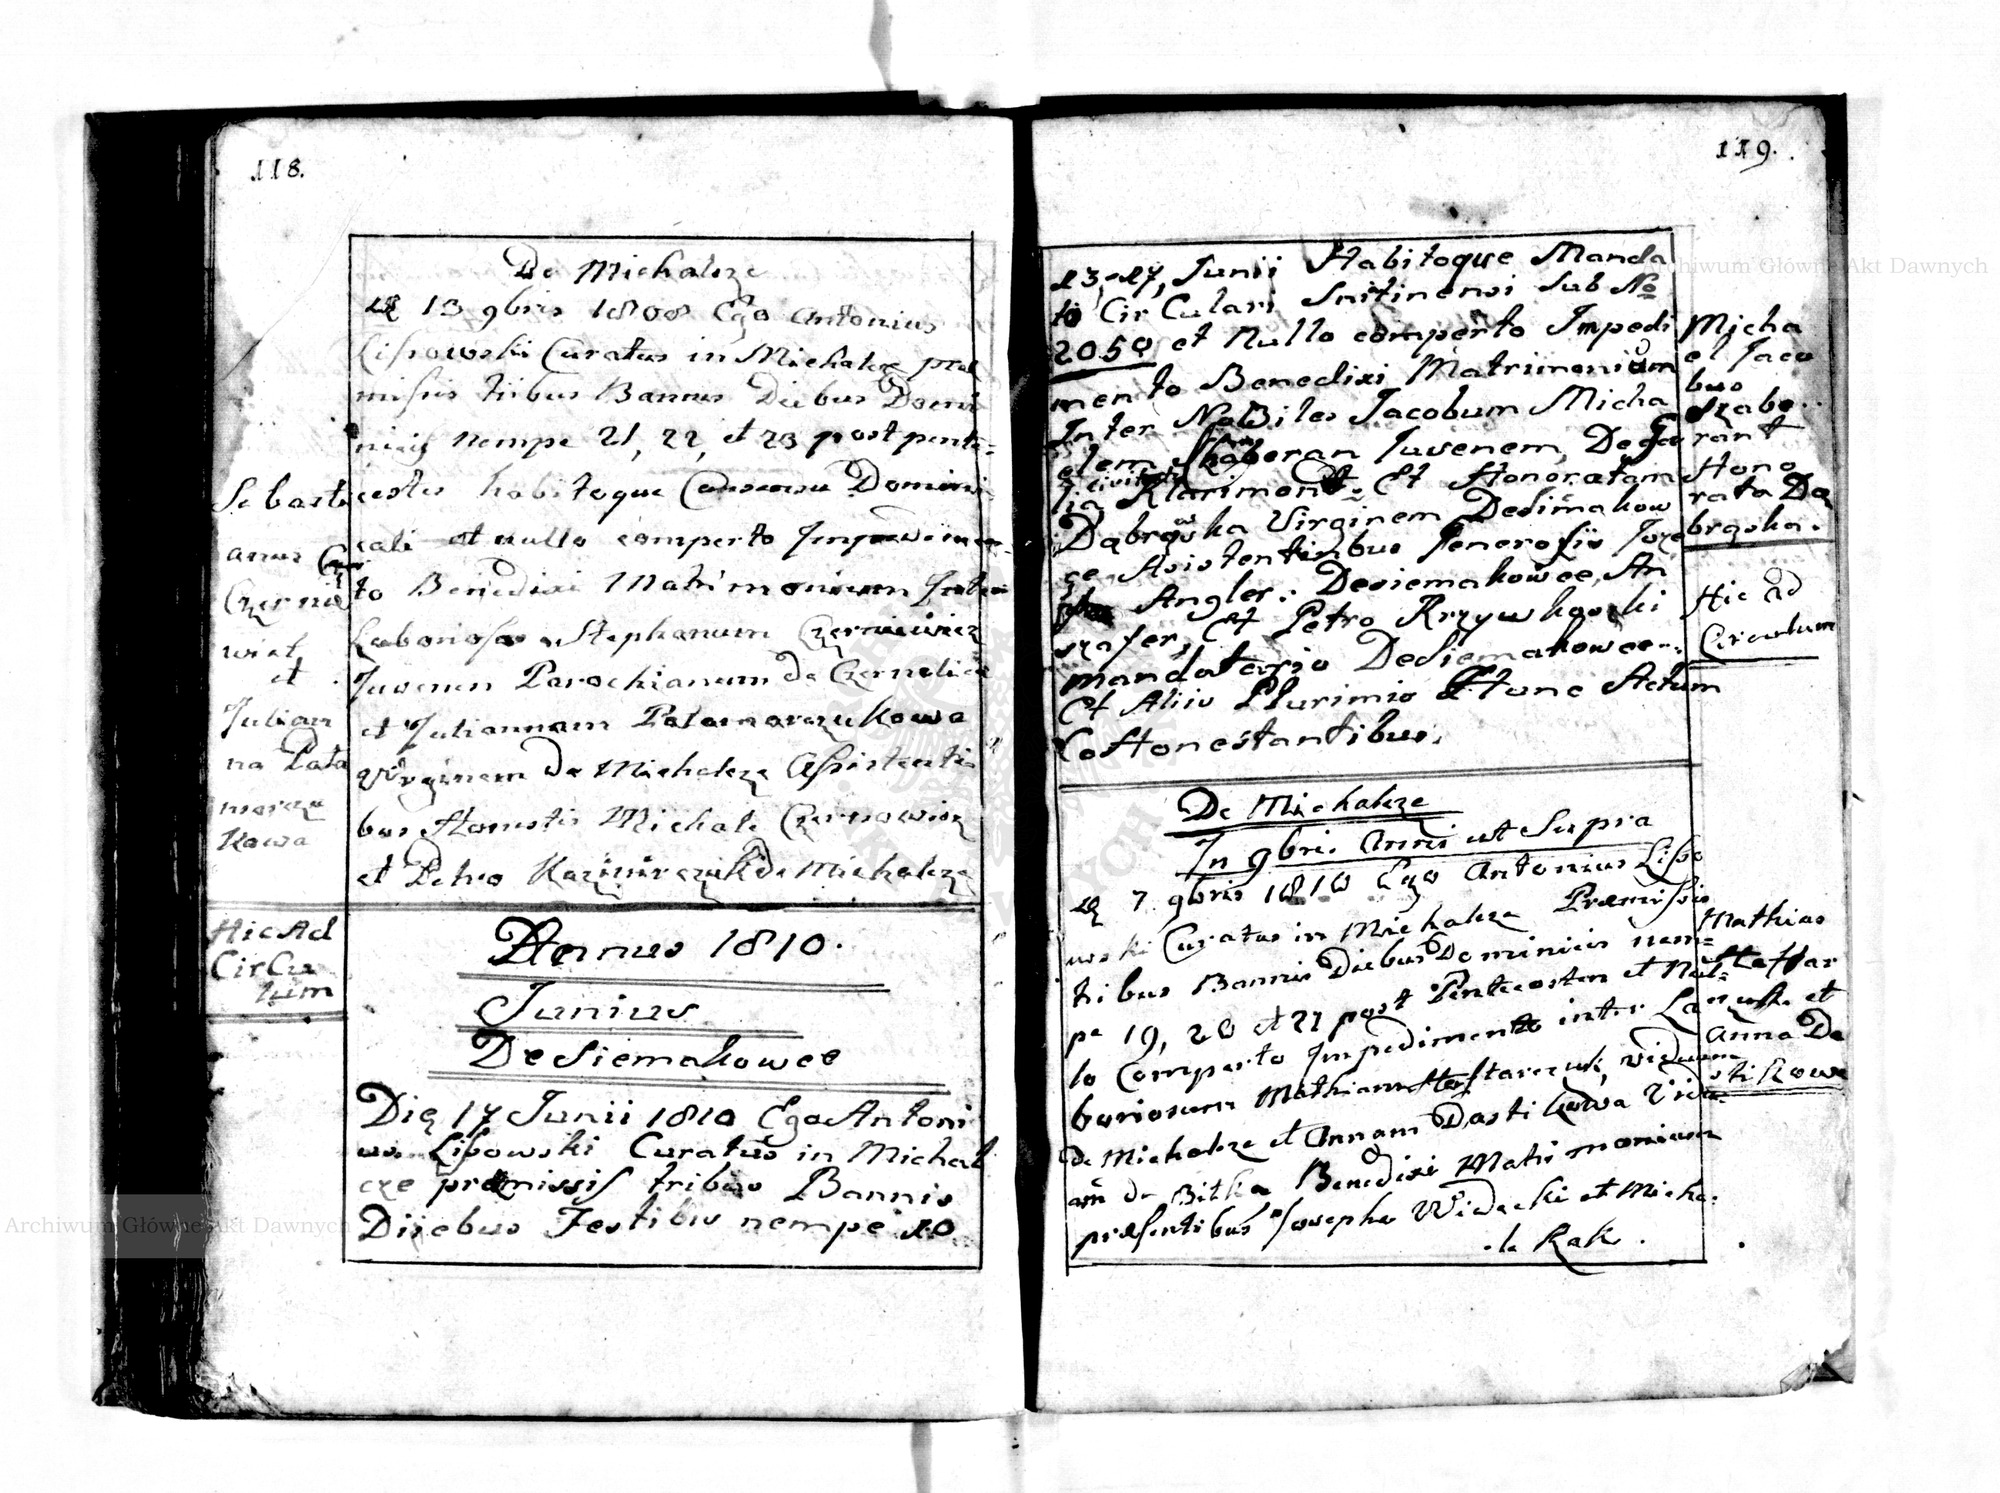 118.
De Michalcze
13 9bris 1808 Ego Antonius
Lisowski Curatus in Michalcze prae
missis tribus Bannis Diebus Domi
nicis nempe 21, 22, et 23 post pente=
costes habitoque Consensu Domini
cali et nullo comperto Impedimen
to Benedixi Matrimonium Inter
Laboriosos Stephanum Czerniewicz
Juvenen Parochianum de Czernelica
et Juliannam Patamarczukowa
Virginem de Michalcze Assistenti
bus Honestis Michale Czernowicz
et Petro Kazimirczuk de Michalcze
Sebasti
anus
Czernie
wicz
et
Julian
na Pata
marczu
kowa
Hic Ad
CirCu
lum
Annus 1810.
Junius
De Siemakowce
Die 17 Junii 1810 Ego Antoni
us Lisowski Curatus in Michal
cze praemissis tribus Bannis
Diiebus Festibus nempe 10
119.
13, 17, Junii Habitoque Manda
to CirCulari Snitinensi Sub No
2050 et Nullo comperto Impedi
mento Benedixi Matrimonium
Inter NoBiles Jacobum Micha
elem Juvenem, De Ga
licia Et Honoratam
Dąbrowska Virginem Desimakow
ce Asistentibus Generosis Joze
Angler: Desiemakowce, An
szafer, Et Petro Krzywkowski
mandatario Desiemakowce
Et Aliis Plurimis Hunc Actum
CoHonestantibus.
Micha
el Jaco
bus
Szabo
rant
Hono
rata Dą
brąska.
Hic ad
Circulum
De Michalcze
In 9bris Anni ut Supra
7 9bris 1810 Ego Antonius Liso
wski Curatus in Michalcze Praemissis
tribus Bannis Diebus Dominicis nem=
pe 19, 20 et 21 post Pentecosten et Nul=
lo Comperto Impedimento inter La
boriosum Mathiam viduum
de Michalcze et Annam Dastikowa Vidu
am de Bitka Benedixi Matrimonium
praesentibus Josepho Widecki et Micha:
le Rak.
Mathias
et
Anna Da
stikowa